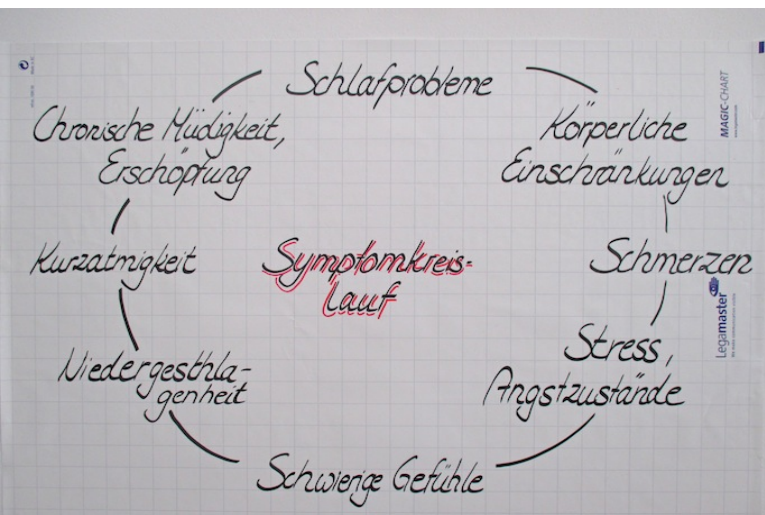 Schlafprobleme
Körperliche
Einschränkungen
Schmerzen
Stress,
Angstzustände
Schwierige Gefühle
Niedergeschla-
genheit
Kurzatmigkeit
Chronische Müdigkeit,
Erschöpfung
Symptomkreis-
lauf
MAGIC-CHART
Legamaster